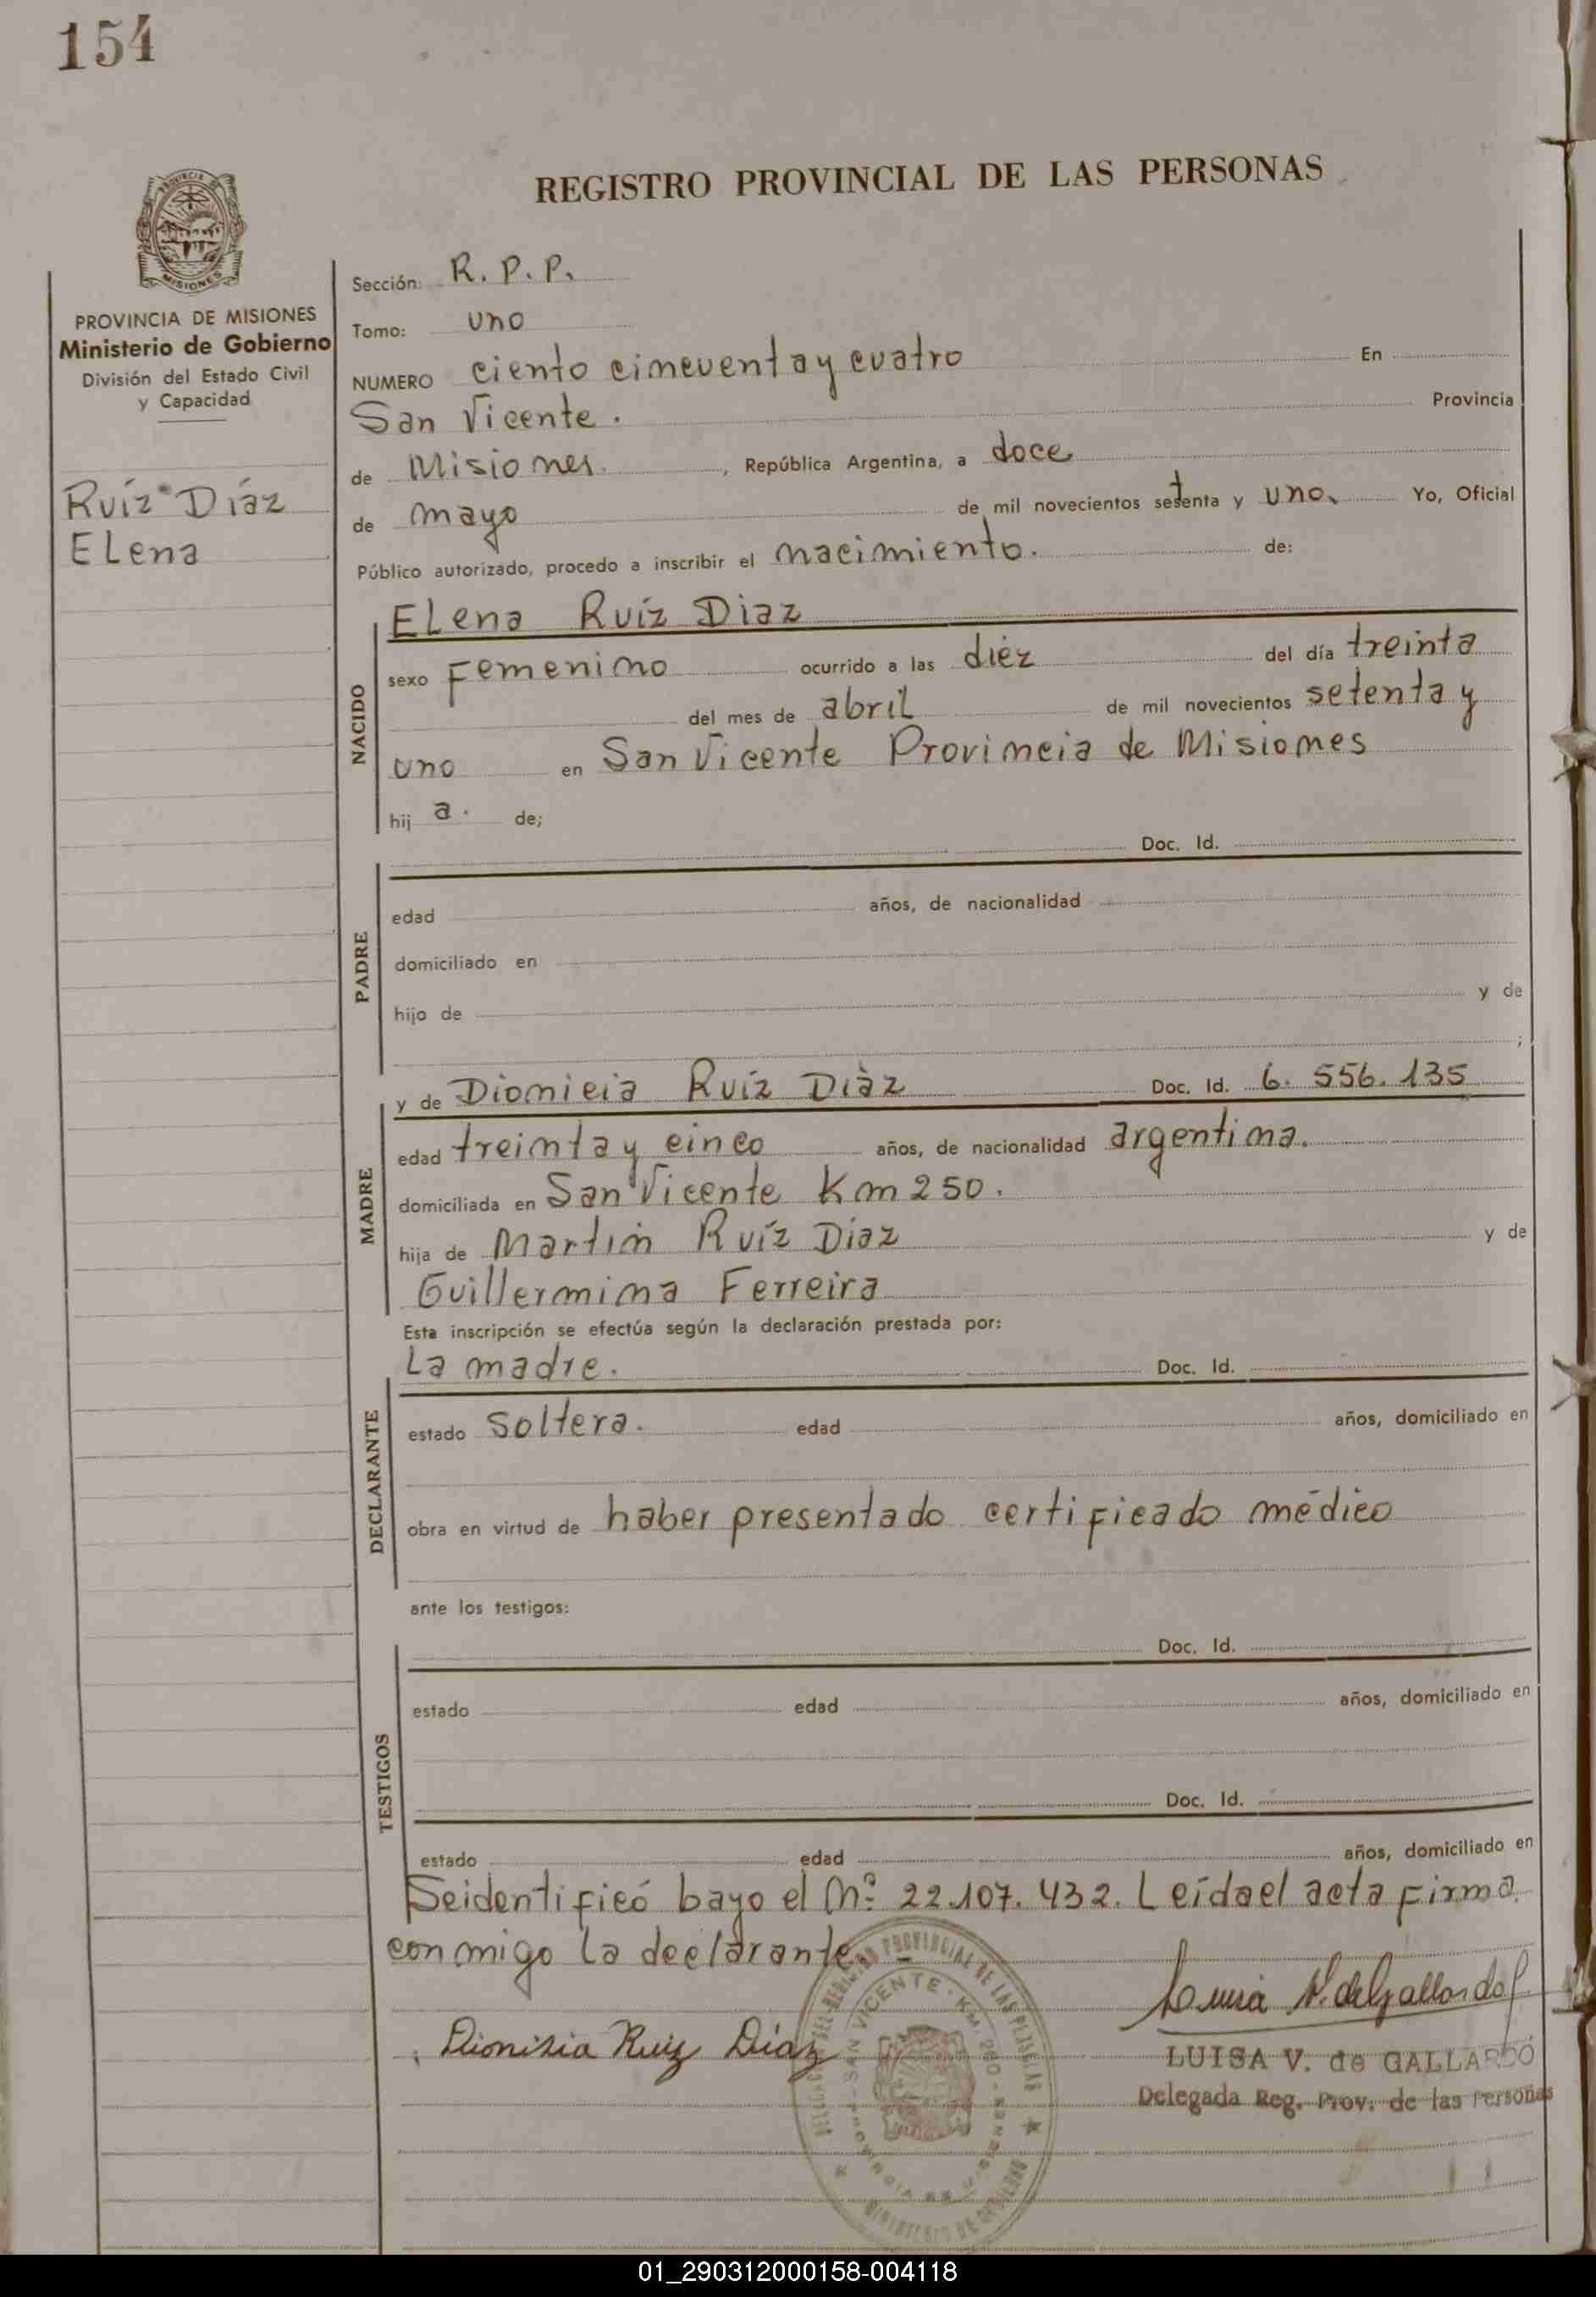 154
REGISTRO PROVINCIAL DE LAS PERSONAS
PROVINCIA DE MISIONES
Ministerio de Gobierno
División del Estado Civil
y Capacidad
Ruíz Díaz
Elena
Sección: R. P. P.
Tomo: uno
NUMERO ciento cincuenta y cuatro En
San Vicente. Provincia
de Misiones. , República Argentina, a doce
de mayo de mil novecientos setenta y uno. Yo, Oficial
Público autorizado, procedo a inscribir el nacimiento. de:
NACIDO
Elena Ruíz Diaz
sexo Femenino ocurrido a las diez del día treinta
del mes de abril de mil novecientos setenta y
uno en San Vicente Provincia de Misiones
hij a. de;
PADRE
Doc. Id.
edad años, de nacionalidad
domiciliado en
hijo de y de
;
MADRE
y de Dionicia Ruíz Díaz Doc. Id. 6. 556. 135
edad treinta y cinco años, de nacionalidad argentina.
domiciliada en San Vicente Km 250.
hija de Martín Ruíz Díaz y de
Guillermina Ferreira
Esta inscripción se efectúa según la declaración prestada por:
DECLARANTE
La madre. Doc. Id.
estado Soltera. edad años, domiciliado en
obra en virtud de haber presentado certificado médico
ante los testigos:
TESTIGOS
Doc. Id.
estado edad años, domiciliado en
Doc. Id.
estado edad años, domiciliado en
Se identificó bayo el Nº 22.107.432. Leída el acta firma
conmigo la declarante.
Dionisia Ruiz Díaz
Luisa V. de Gallardo
LUISA V. de GALLARDO
Delegada Reg. Prov. de las Personas
SAN VICENTE - KM.
01_290312000158-004118